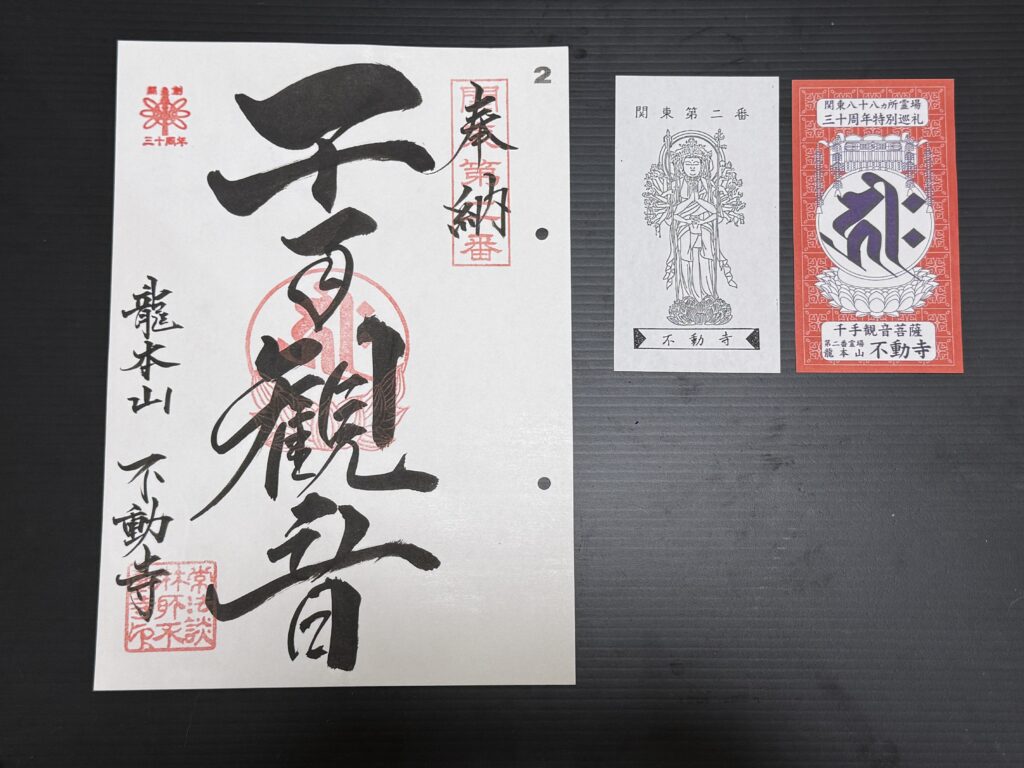 2
関東第二番
奉納
千手観音
開創
三十周年
龍本山 不動寺
常法談
林所不
動寺印
関東第二番
不動寺
関東八十八ヵ所霊場
三十周年特別巡礼
千手観音菩薩
第二番霊場
龍本山 不動寺